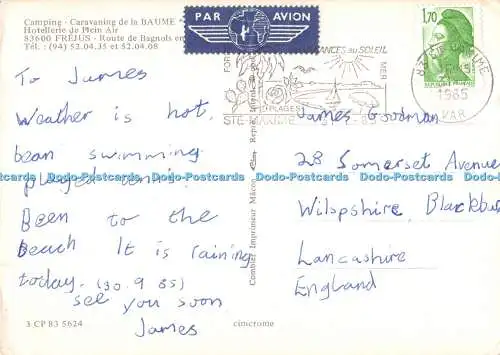 Camping - Caravaning de la BAUME
Hotellerie de Plein Air
83600 FRÉJUS - Route de Bagnols en
Tél. : (94) 52.04.35 et 52.04.08
PAR AVION
1,70
REPUBLIQUE FRANCAISE
VACANCES au SOLEIL
MER
PLAGES
STE-MAXIME
83 STE MAXIME
1985
VAR
To James
Weather is hot.
bean swimming
played tennis.
Been to the
beach It is raining
today. (30.9 85)
see you soon
James
James Goodman
28 Somerset Avenue
Wilspshire, Blackbur
Lancashire
England
Combier Imprimeur Mâcon
3 CP 83 5624
cimcrome
Dodo-Postcards Dodo-Postcards Dodo-Postcards Dodo-Postcards